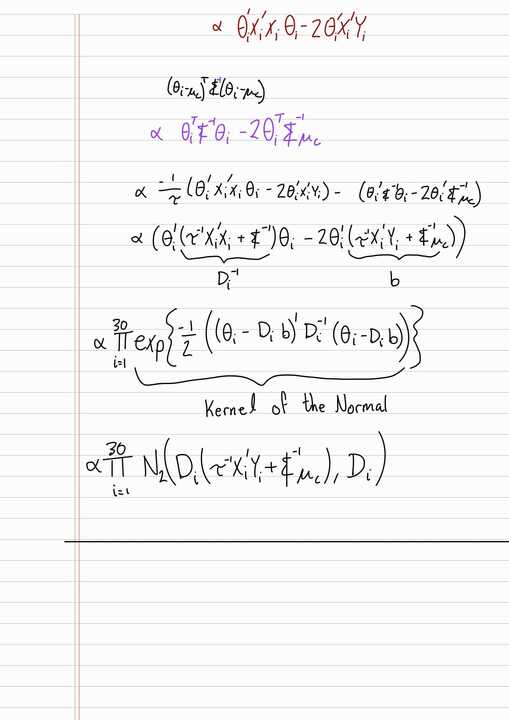 ∝ θᵢ'Xᵢ'Xᵢθᵢ - 2θᵢ'Xᵢ'Yᵢ
(θᵢ-μ_c)ᵀΣ⁻¹(θᵢ-μ_c)
∝ θᵢᵀΣ⁻¹θᵢ - 2θᵢᵀΣ⁻¹μ_c
∝ -1/τ (θᵢ'Xᵢ'Xᵢθᵢ - 2θᵢ'Xᵢ'Yᵢ) - (θᵢ'Σ⁻¹θᵢ - 2θᵢ'Σ⁻¹μ_c)
∝ (θᵢ'(τ⁻¹Xᵢ'Xᵢ + Σ⁻¹)θᵢ - 2θᵢ'(τ⁻¹Xᵢ'Yᵢ + Σ⁻¹μ_c))
Dᵢ⁻¹ b
∝ ∏_{i=1}^{30} exp{-1/2 ((θᵢ - Dᵢ b)' Dᵢ⁻¹ (θᵢ - Dᵢ b))}
Kernel of the Normal
∝ ∏_{i=1}^{30} N₂(Dᵢ(τ⁻¹Xᵢ'Yᵢ + Σ⁻¹μ_c), Dᵢ)